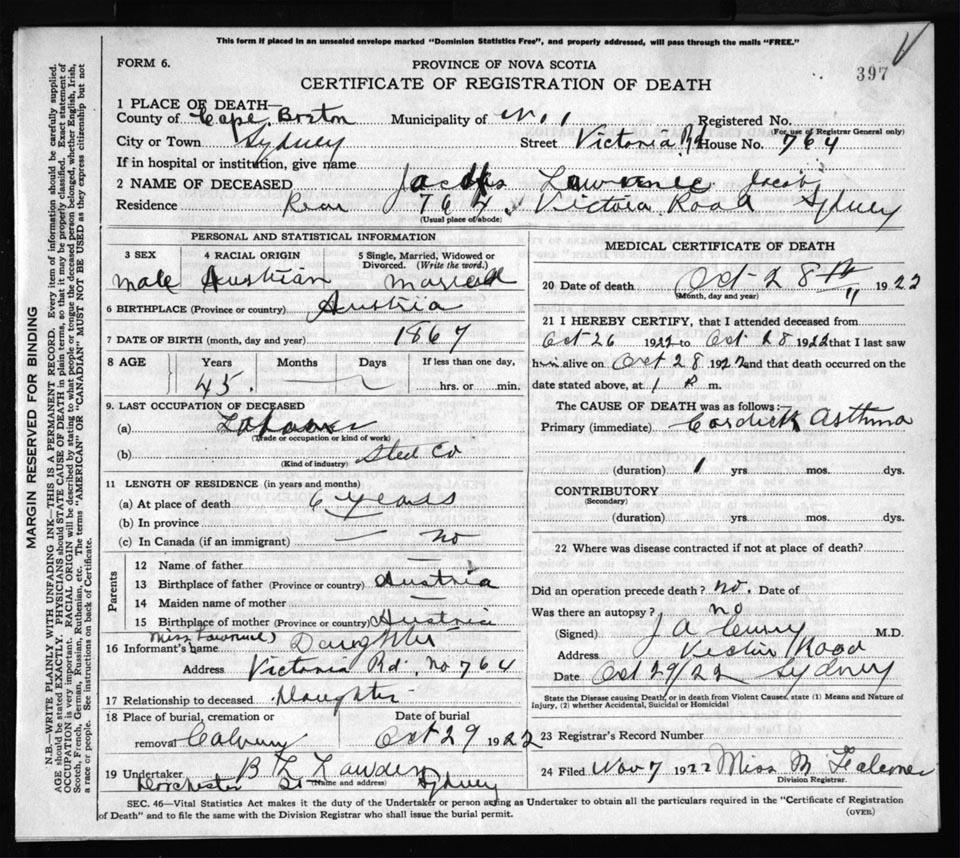 This form if placed in an unsealed envelope marked "Dominion Statistics Free", and properly addressed, will pass through the mails "FREE."
FORM 6. PROVINCE OF NOVA SCOTIA 397
CERTIFICATE OF REGISTRATION OF DEATH
1 PLACE OF DEATH—
County of Cape Breton Municipality of No. 1 Registered No.
(For use of Registrar General only)
City or Town Sydney Street Victoria Rd House No. 764
If in hospital or institution, give name
2 NAME OF DECEASED Lawrence Jacobs
Residence Rear 764 Victoria Road Sydney
(Usual place of abode)
PERSONAL AND STATISTICAL INFORMATION
3 SEX 4 RACIAL ORIGIN 5 Single, Married, Widowed or Divorced. (Write the word.)
male Austrian married
6 BIRTHPLACE (Province or country) Austria
7 DATE OF BIRTH (month, day and year) 1867
8 AGE Years Months Days If less than one day,
45. hrs. or min.
9. LAST OCCUPATION OF DECEASED
(a) Labourer
(Trade or occupation or kind of work)
(b) Steel Co
(Kind of industry)
11 LENGTH OF RESIDENCE (in years and months)
(a) At place of death 6 years
(b) In province
(c) In Canada (if an immigrant) — no
Parents
12 Name of father —
13 Birthplace of father (Province or country) Austria
14 Maiden name of mother —
15 Birthplace of mother (Province or country) Austria
16 Informant's name Daughter
Address Victoria Rd. No 764
17 Relationship to deceased Daughter
18 Place of burial, cremation or Date of burial
removal Calvary Oct 29 1922
19 Undertaker
(Name and address)
Dorchester St Sydney
MEDICAL CERTIFICATE OF DEATH
20 Date of death Oct 28th 1922
(Month, day and year)
21 I HEREBY CERTIFY, that I attended deceased from
Oct 26 1922 to Oct 28 1922 that I last saw
him alive on Oct 28 1922 and that death occurred on the
date stated above, at 1 P m.
The CAUSE OF DEATH was as follows:—
Primary (immediate) Cardiac Asthma
(duration) 1 yrs mos. dys.
CONTRIBUTORY
(Secondary)
(duration) yrs mos. dys.
22 Where was disease contracted if not at place of death?
Did an operation precede death? no. Date of
Was there an autopsy? no
(Signed) J A M.D.
Address Victoria Road
Date Oct 29/22 Sydney
State the Disease causing Death, or in death from Violent Causes, state (1) Means and Nature of
Injury, (2) whether Accidental, Suicidal or Homicidal
23 Registrar's Record Number
24 Filed Nov 7 1922 Miss M Falconer
Division Registrar.
SEC. 46—Vital Statistics Act makes it the duty of the Undertaker or person acting as Undertaker to obtain all the particulars required in the "Certificate of Registration
of Death" and to file the same with the Division Registrar who shall issue the burial permit.
(OVER)
MARGIN RESERVED FOR BINDING
N.B.—WRITE PLAINLY WITH UNFADING INK—THIS IS A PERMANENT RECORD. Every item of information should be carefully supplied.
AGE should be stated EXACTLY. PHYSICIANS should STATE CAUSE OF DEATH in plain terms, so that it may be properly classified. Exact statement of
OCCUPATION is very important. RACIAL ORIGIN will be described by stating to what people or tongue the deceased person belonged, whether English, Irish,
Scotch, French, German, Russian, Ruthenian, etc. The terms "AMERICAN" or "CANADIAN" MUST NOT BE USED as they express citizenship but not
a race or people. See instructions on back of Certificate.